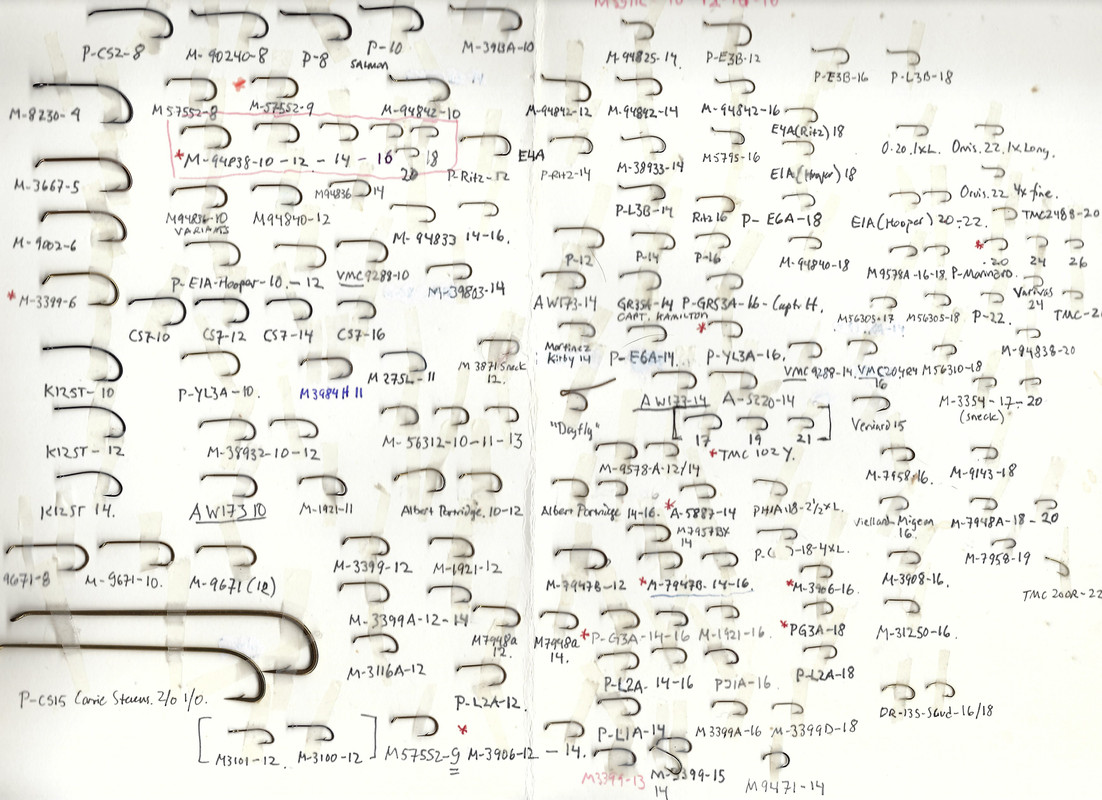 P-CS2-8
M-90240-8
P-8
P-10
SALMON
M-3913A-10
M-94825-14
P-E3B-12
P-E3B-16
P-L3B-18
M-8230-4
M57552-8
M-57552-9
M-94842-10
M-94842-12
M-94842-14
M-94842-16
E4A(Ritz) 18
O-20.1XL.
Orvis.22.1X.Long.
*M-94838-10-12-14-16 18
20
P-Ritz-12
E4A
P-Ritz-14
M-38933-14
M5795-16
E1A(Hooper) 18
Orvis.22 4x fine.
M-3667-5
M94836-10
VARIANTS
M94840-12
M94836 14
M-94833 14-16.
P-L3B-14
Ritz 16
P-E6A-18
E1A(Hooper) 20-22.
TMC2488-20
M-9002-6
P-E1A-Hooper-10.-12
VMC9288-10
M-39803-14
P-12
P-14
P-16
M-94840-18
M9578A-16-18
P-Marinaro.
*20 24 26
*M-3399-6
CS7-10
CS7-12
CS7-14
CS7-16
AW173-14
GR3SA-14
CAPT. HAMILTON
P-GRS3A-16-Capt. H.
M56305-17
M56305-18
P-22.
Varivas
24
K12ST-10
P-YL3A-10.
M3984H 11
M275L-11
M3871 Sneck
12.
Martinez
Kirby 14
P-E6A-14.
P-YL3A-16.
VMC9288-14.
VMC204R4
16
M56310-18
M-94838-20
"Dayfly"
AW173-14
A-S220-14
17 19 21
*TMC 102Y.
Veniard 15
M-3354-17-20
(sneck)
K12ST-12
M-38932-10-12
M-56312-10-11-13
M-9578-A-12/14
M-7958-16.
M-9143-18
K12ST 14.
AW173 10
M-1921-11
Albert Partridge. 10-12
Albert Partridge 14-16.
*A-5887-14
PH1A18-2½XL.
Viellard-Migeon
16.
M-7948A-18-20
M7957BX
14
-18-4XL.
M-7958-19
9671-8
M-9671-10.
M-9671(12)
M-3399-12
M-1921-12
M-7947B-12
*M-7947B-14-16.
*M-3906-16.
M-3908-16.
TMC 200R-22
M-3399A-12-14
M7948a
12.
M7948a
14.
*P-G3A-14-16
M-1921-16.
*PG3A-18
M-31250-16.
M-3116A-12
P-L2A-12.
P-L2A-14-16
PJ1A-16.
P-L2A-18
P-CS15 Carrie Stevens. 2/0 1/0.
DR-135-Scud-16/18
M3101-12.
M-3100-12
M57552-9
M-3906-12-14.
P-L1A-14
M3399A-16
M-3399D-18
M3399-13
M-3399-15
14
M9471-14